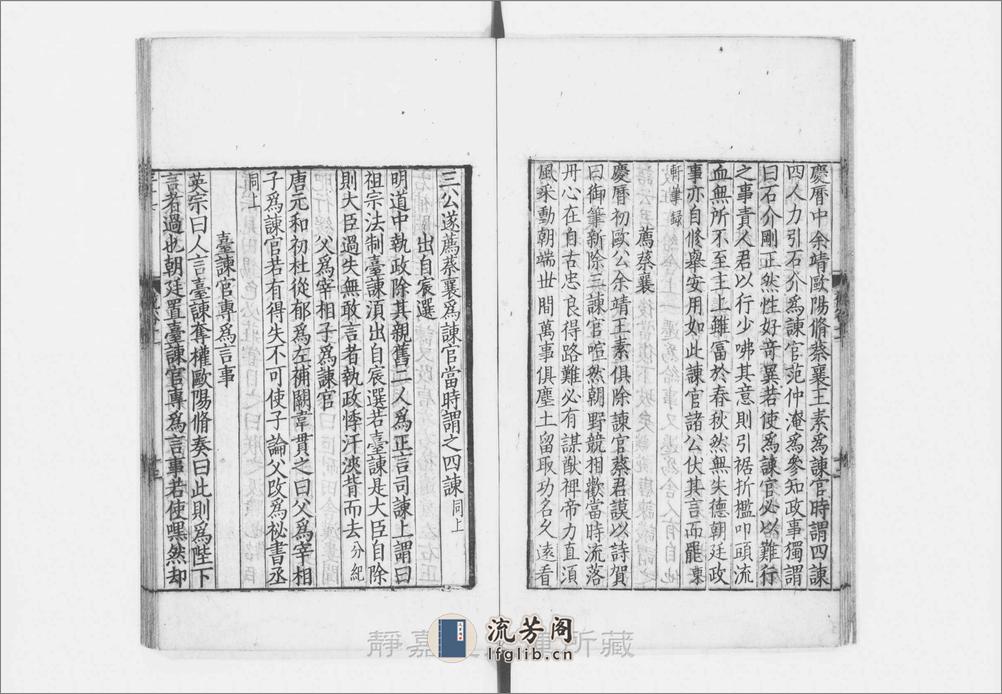 慶曆中余靖歐陽脩蔡襄王素爲諫官時謂四諫
四人力引石介爲諫官范仲淹爲參知政事獨謂
曰石介剛正然性好竒異若使爲諫官必以難行
之事責人君以行少咈其意則引裾折檻叩頭流
血無所不至主上雖冨於春秋然無失德朝廷政
事亦自修舉安用如此諫官諸公伏其言而罷東
軒筆録
薦蔡襄
慶曆初歐公余靖王素俱除諫官蔡君謨以詩賀
曰御筆新除三諫官喧然朝野競相歡當時流落
丹心在自古忠良得路難必有謀猷裨帝力直湏
風采動朝端世間萬事俱塵土留取功名久遠看
三公遂薦蔡襄爲諫官當時謂之四諫同上
出自宸選
明道中執政除其親舊二人爲正言司諫上謂曰
祖宗法制臺諫湏出自宸選若臺諫是大臣自除
則大臣過失無敢言者執政悸汗浹背而去分紀
父爲宰相子爲諫官
唐元和初杜從郁爲左補闕韋貫之曰父爲宰相
子爲諫官若有得失不可使子論父改爲祕書丞
同上
臺諫官專爲言事
英宗曰人言臺諫奪權歐陽脩奏曰此則爲陛下
言者過也朝廷置臺諫官專爲言事若使嘿然却
靜嘉 所藏
流芳阁
lfglib.cn